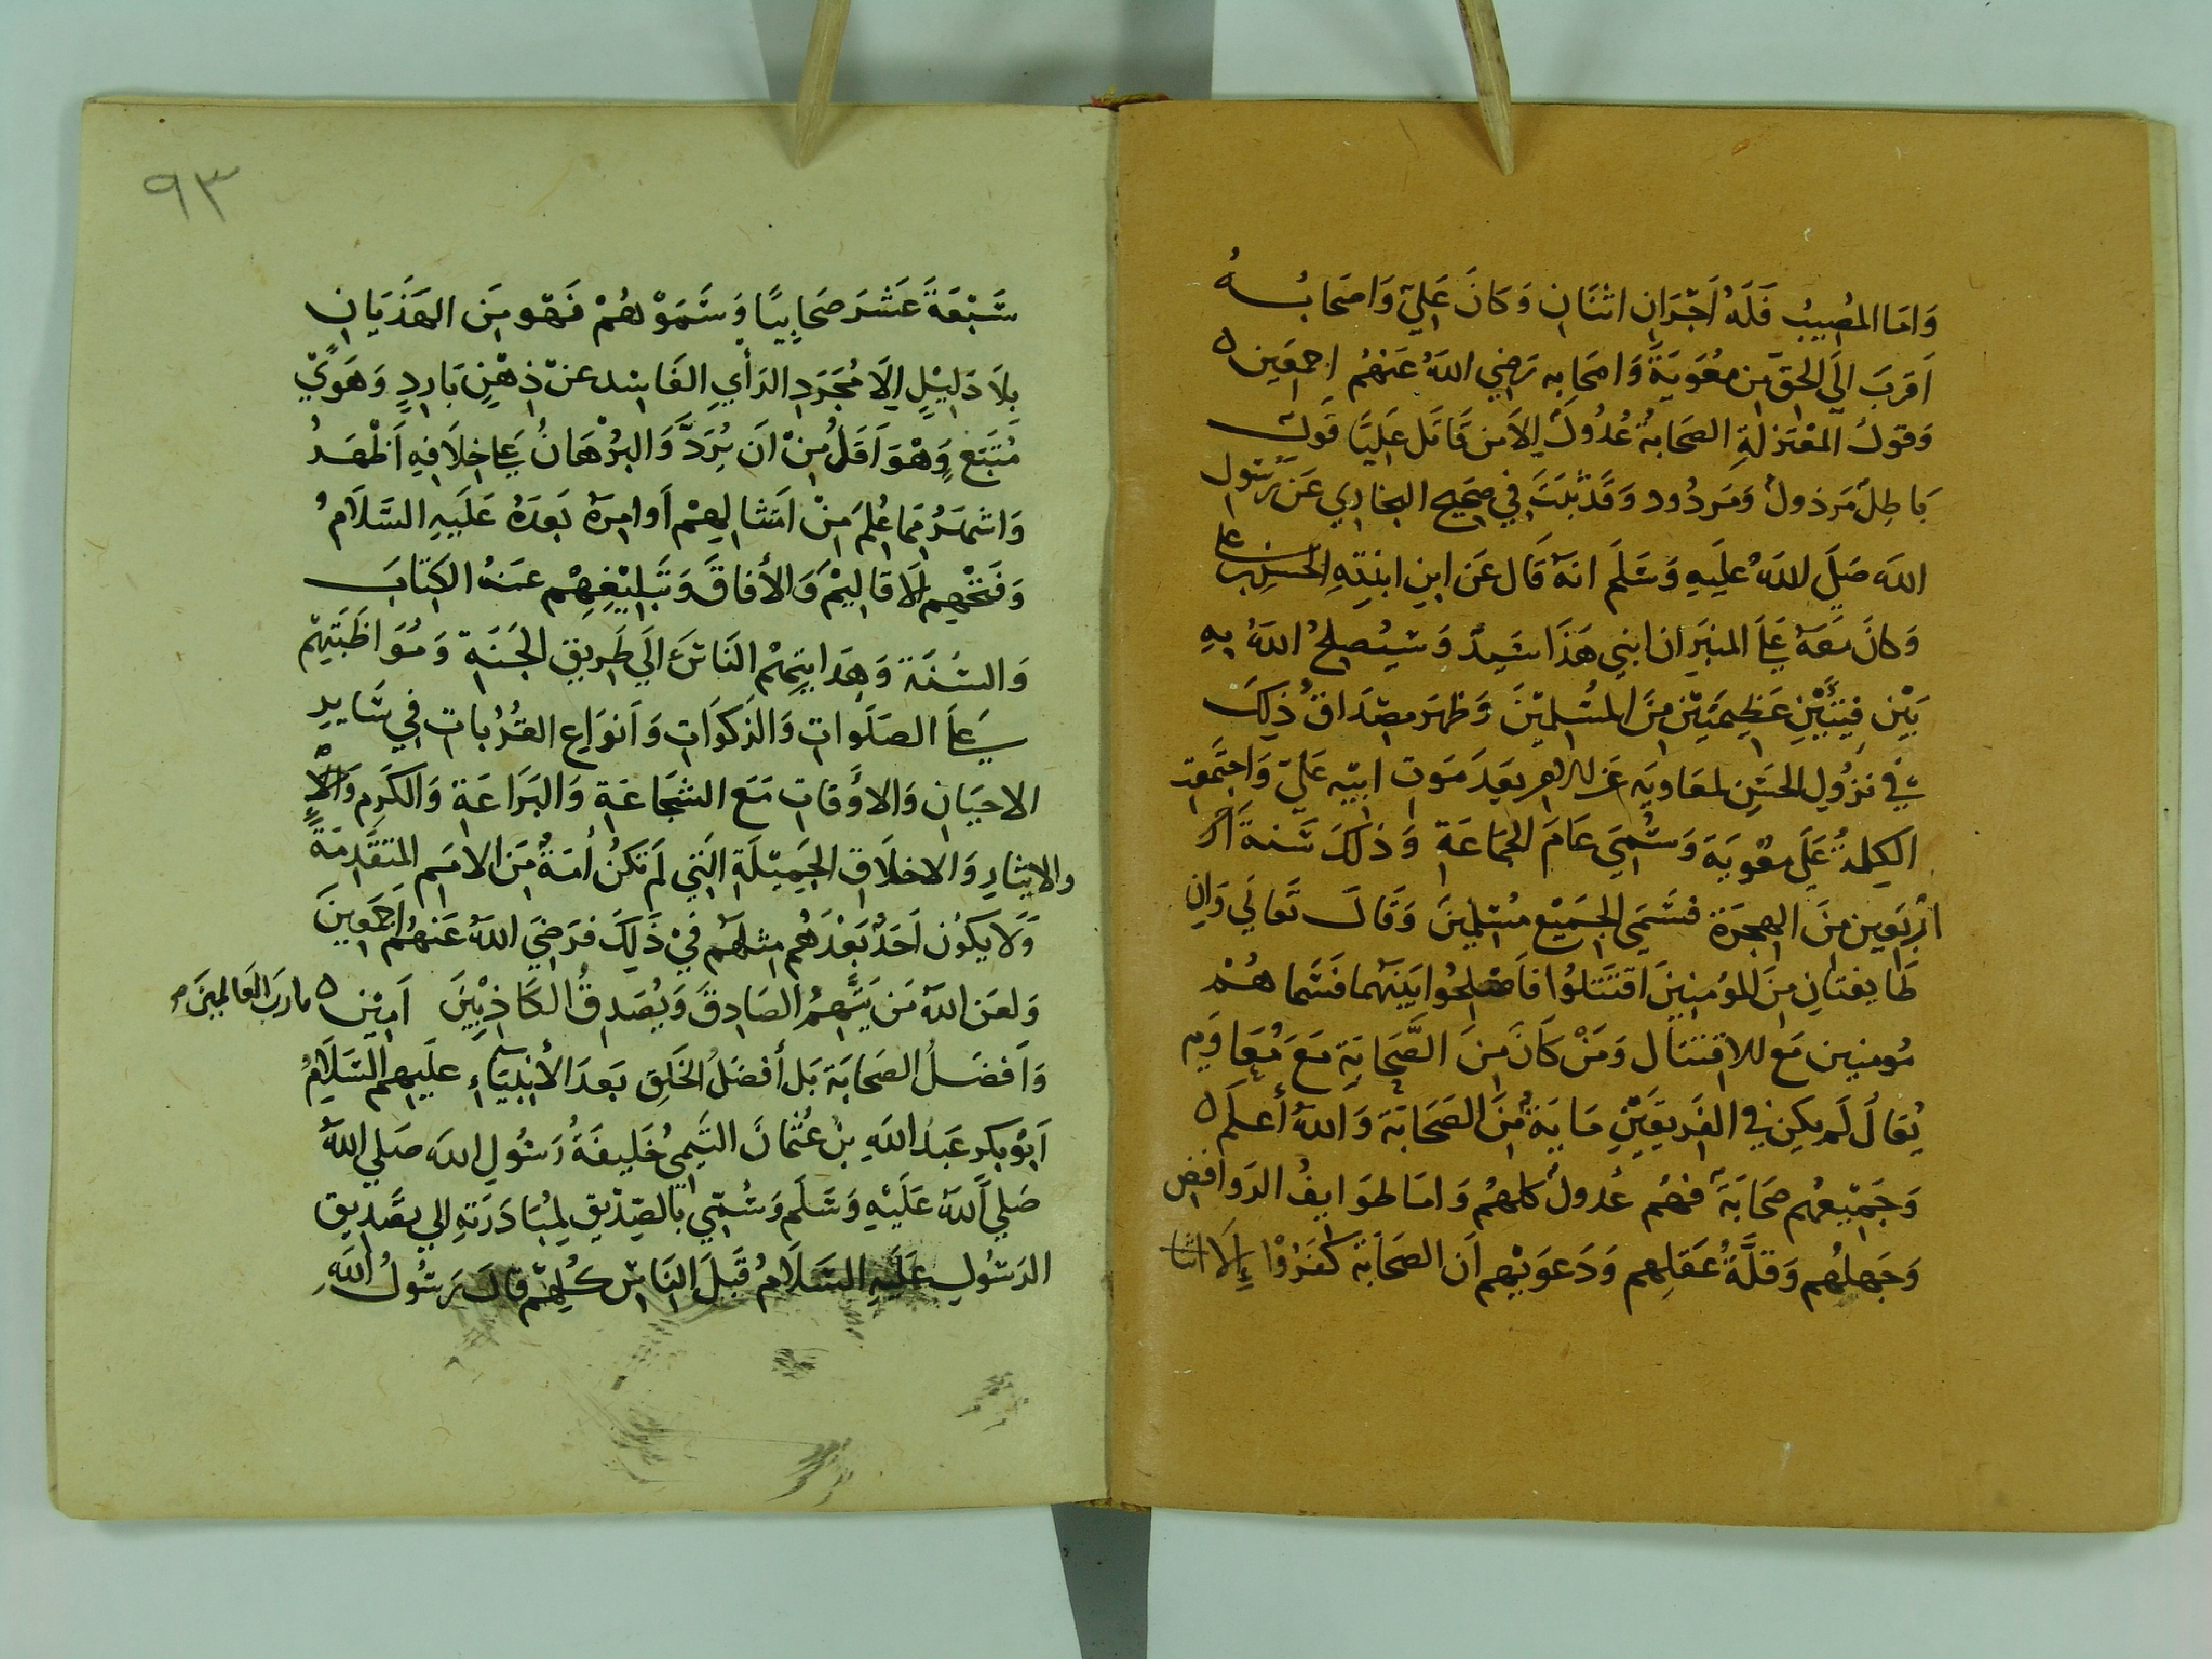 وَامَّا المُصِيبُ فَلَهُ اَجْرَانِ اثْنَانِ وَكَانَ عَلِيّ وَاصْحَابُهُ
اَقْرَبَ الَى الحَقّ مِن مُعَوِيَةَ وَاصْحَابِه رَضِي اللهُ عَنهُم اجمعَين ٥
وَقَولُ المعْتَزلَةِ الصَحَابةُ عُدُولٌ الاَ مَن قَاتَل عَليًا قَولٌ
بَاطِلٌ مَرذولٌ وَمَردُود وَقَد ثبَتَ فِي صَحِيح البخاري عَن رَسُول
الله صَلَّى اللهُ عَلَيهِ وَسَلَم انهُ قَال عَن ابنِ ابنَتِهِ الحَسَن بن علي
وَكانَ مَعَهُ عَلَى المنبَرِ ان ابني هَذَا سَيدٌ وَسَيُصلحُ اللهُ بِهِ
بَيْن فِئَتَيْنِ عَظِيمَتَين مِنَ المُسْلِميْنَ وَظهَر مِصْدَاقُ ذلِكَ
في نزُول الحَسَنِ لمعاويَه عَن الامر بَعدَ مَوت ابيْه عَليّ وَاجتَمَعَت
الكلِمَةُ عَلَى معٰوِيَة وَسُمِّيَ عَامَ الجَمَاعَة وَذلكَ سَنة
اربَعِين مِنَ الهجرَة فسَمَى الجَمِيْع مُسْلِمينَ وَقَالَ تَعَالَي وَان
طَايفتانِ مِنَ المؤمِنِينَ اقتتَلُوا فَاَصْلِحُوا بَينَهما فَسَّما هُمْ
مُومنين مَع الاقتتَال وَمَنْ كَانَ مِنَ الصَّحَابَةِ مَعَ مُعَاوَيه
يُقالُ لَم يكن في الفَريقَيْنِ مَايَةٌ مِنَ الصَحَابَة وَاللهُ أَعلَم ٥
وَجَمِيْعهُم صَحَابَة فهُم عُدولٌ كلهُم وَامَا طوَايفُ الرَوافض
وَجَهلُهُم وَقلَّةُ عَقلِهم وَدَعوَيهم اَن الصَحَابَة كَفَرُوْا إلا
٩٣
سَبْعَةَ عَشَر صَحَابِيًا وَسَمَوْهُمْ فَهْو مِنَ الهَذَيَانِ
بِلاَ دَلِيْلٍ إلَا مُجَرَدِ الرَأيِ الفَاسِد عَنْ ذِهْنٍ بَاردٍ وَهَوًي
مُتَبَعٍ وَهْوَ اَقَلُ مِنْ اَن يُرَدَّ وَالبُرْهَانُ عَلَى خِلَافِهِ اَظْهَرُ
وَاشهَرُ مِمَا عُلِمَ مِنْ امتثالِهِمْ اَوامِرَهُ بَعدَهُ عَلَيهِ السَّلَامُ
وَفَتْحِهِم الاقَاليْمَ وَالأفاقَ وَتَبليْغِهِمْ عنهُ الكِتَابَ
وَالسُنَة وَهِدَايَتِهمُ النَاسَ الَي طَريقِ الجَنَةِ وَمُوَاظَبَتِهمْ
عَلَى الصَلَواتِ وَالزَكوَاتِ وَاَنوَاع القُرُبات فِي سَايرِ
الاحيَان وَالاوْقات مَعَ الشجَاعَة وَالبَرَاعَة وَالكَرم
والايثار وَالاخلَاق الجَمِيْلَة التي لَم تَكنُ اُمَةٌ مِنَ الامَم المتَقَدِمَة
وَلَا يكوُن اَحَدٌ بَعْدَهُم مِثلهُم فِيْ ذَلِكَ فرَضيَ اللهُ عَنهُم اَجمَعِينَ
وَلعَن اللهُ مَن يَتهمُ الصَادقَ وَيُصَدِقُ الكَاذِبيْنَ اَمِيْن ٥ يا رَبَ العَالمينَ
وَاَفضَلُ الصَحَابَة بَل أفضَلُ الخَلقِ بَعدَ الأنبِيَاءِ عَليهِم السَّلَامُ
اَبُو بَكرٍ عَبدُ اللهِ بْن عُثمَانَ التَيمِي خَليفَةُ رَسُولِ الله صَلي اللهُ
صَلي اللهُ عَلَيْهِ وَسَلَم وَسُمّي بالصِدّيقِ لِمُبَادَرَتِهِ الي تصْديق
الرَسُول عَلَيهِ السَّلَامُ قَبلَ النَاس كُلِهمْ قال رَسُولُ اللهِ